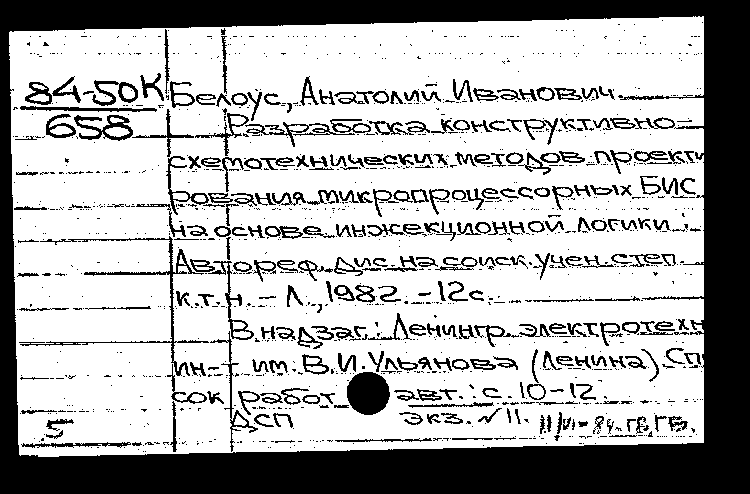 84-50К Белоус, Анатолий Иванович.
658 Разработка конструктивно-
схемотехнических методов проекти
рования микропроцессорных БИС
на основе инжекционной логики :
Автореф. дис. на соиск. учен. степ.
к.т.н. - Л., 1982. - 12с.
В надзаг.: Ленингр. электротехн
ин-т им. В.И. Ульянова (Ленина). Спи
сок работ авт.: с. 10-12.
5 ДСП экз. №11. 11/VI-84. ГВ, ГБ.